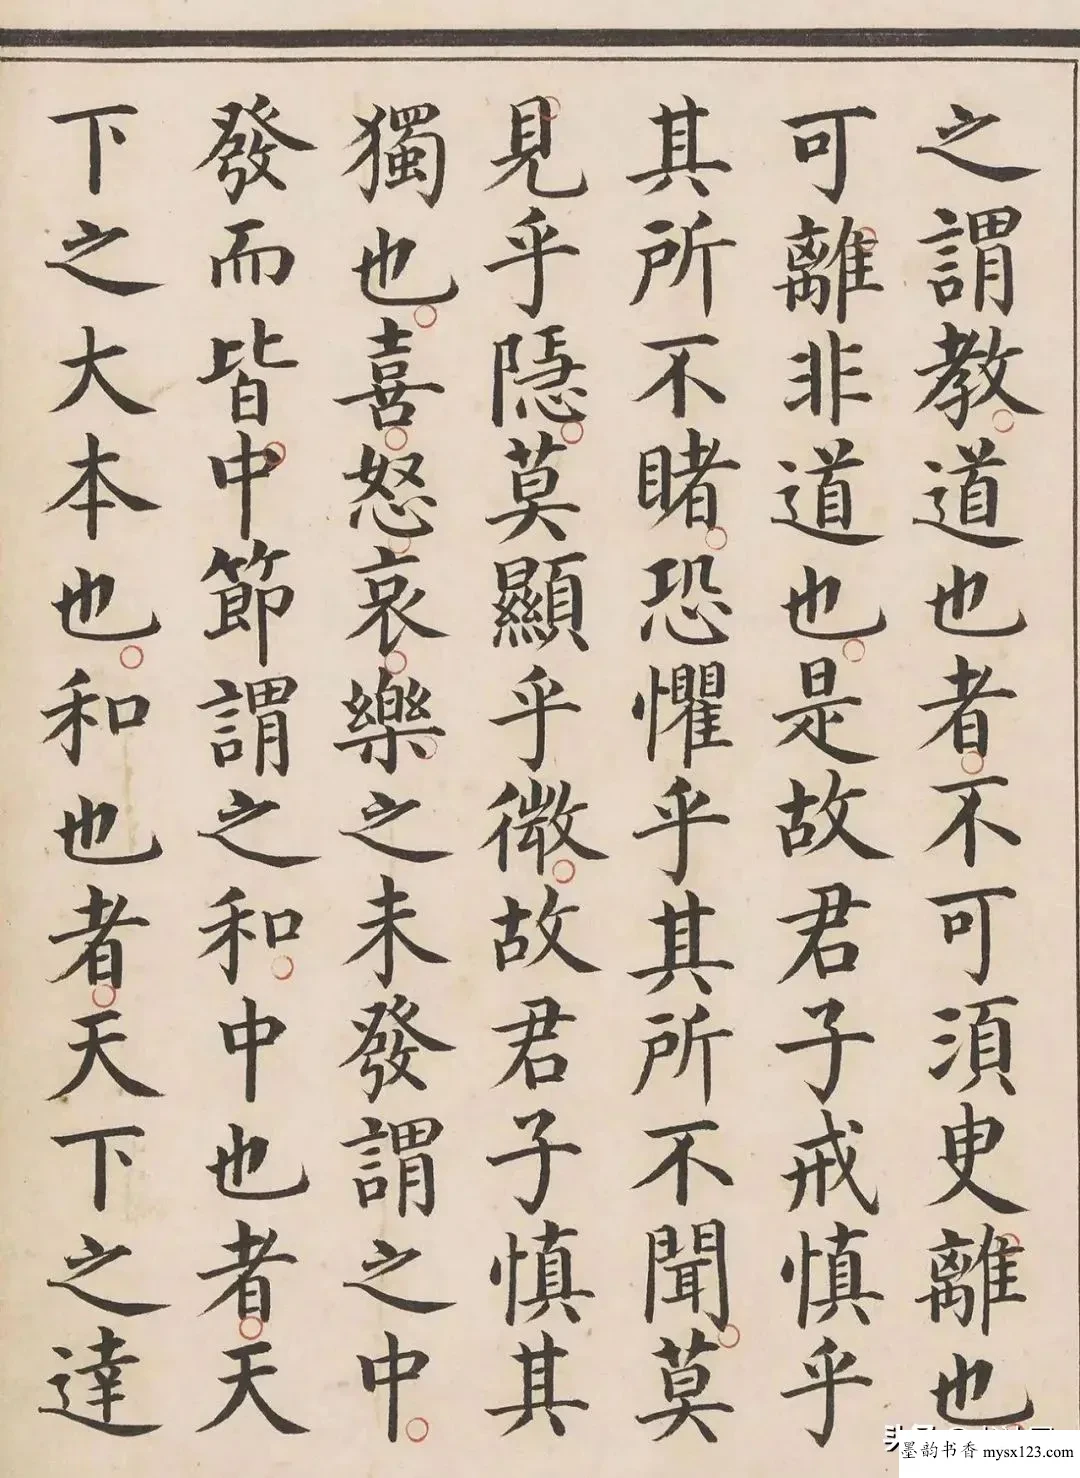 之謂教道也者不可須臾離也
可離非道也是故君子戒慎乎
其所不睹恐懼乎其所不聞莫
見乎隱莫顯乎微故君子慎其
獨也喜怒哀樂之未發謂之中
發而皆中節謂之和中也者天
下之大本也和也者天下之達
墨韵书香 mysx123.com